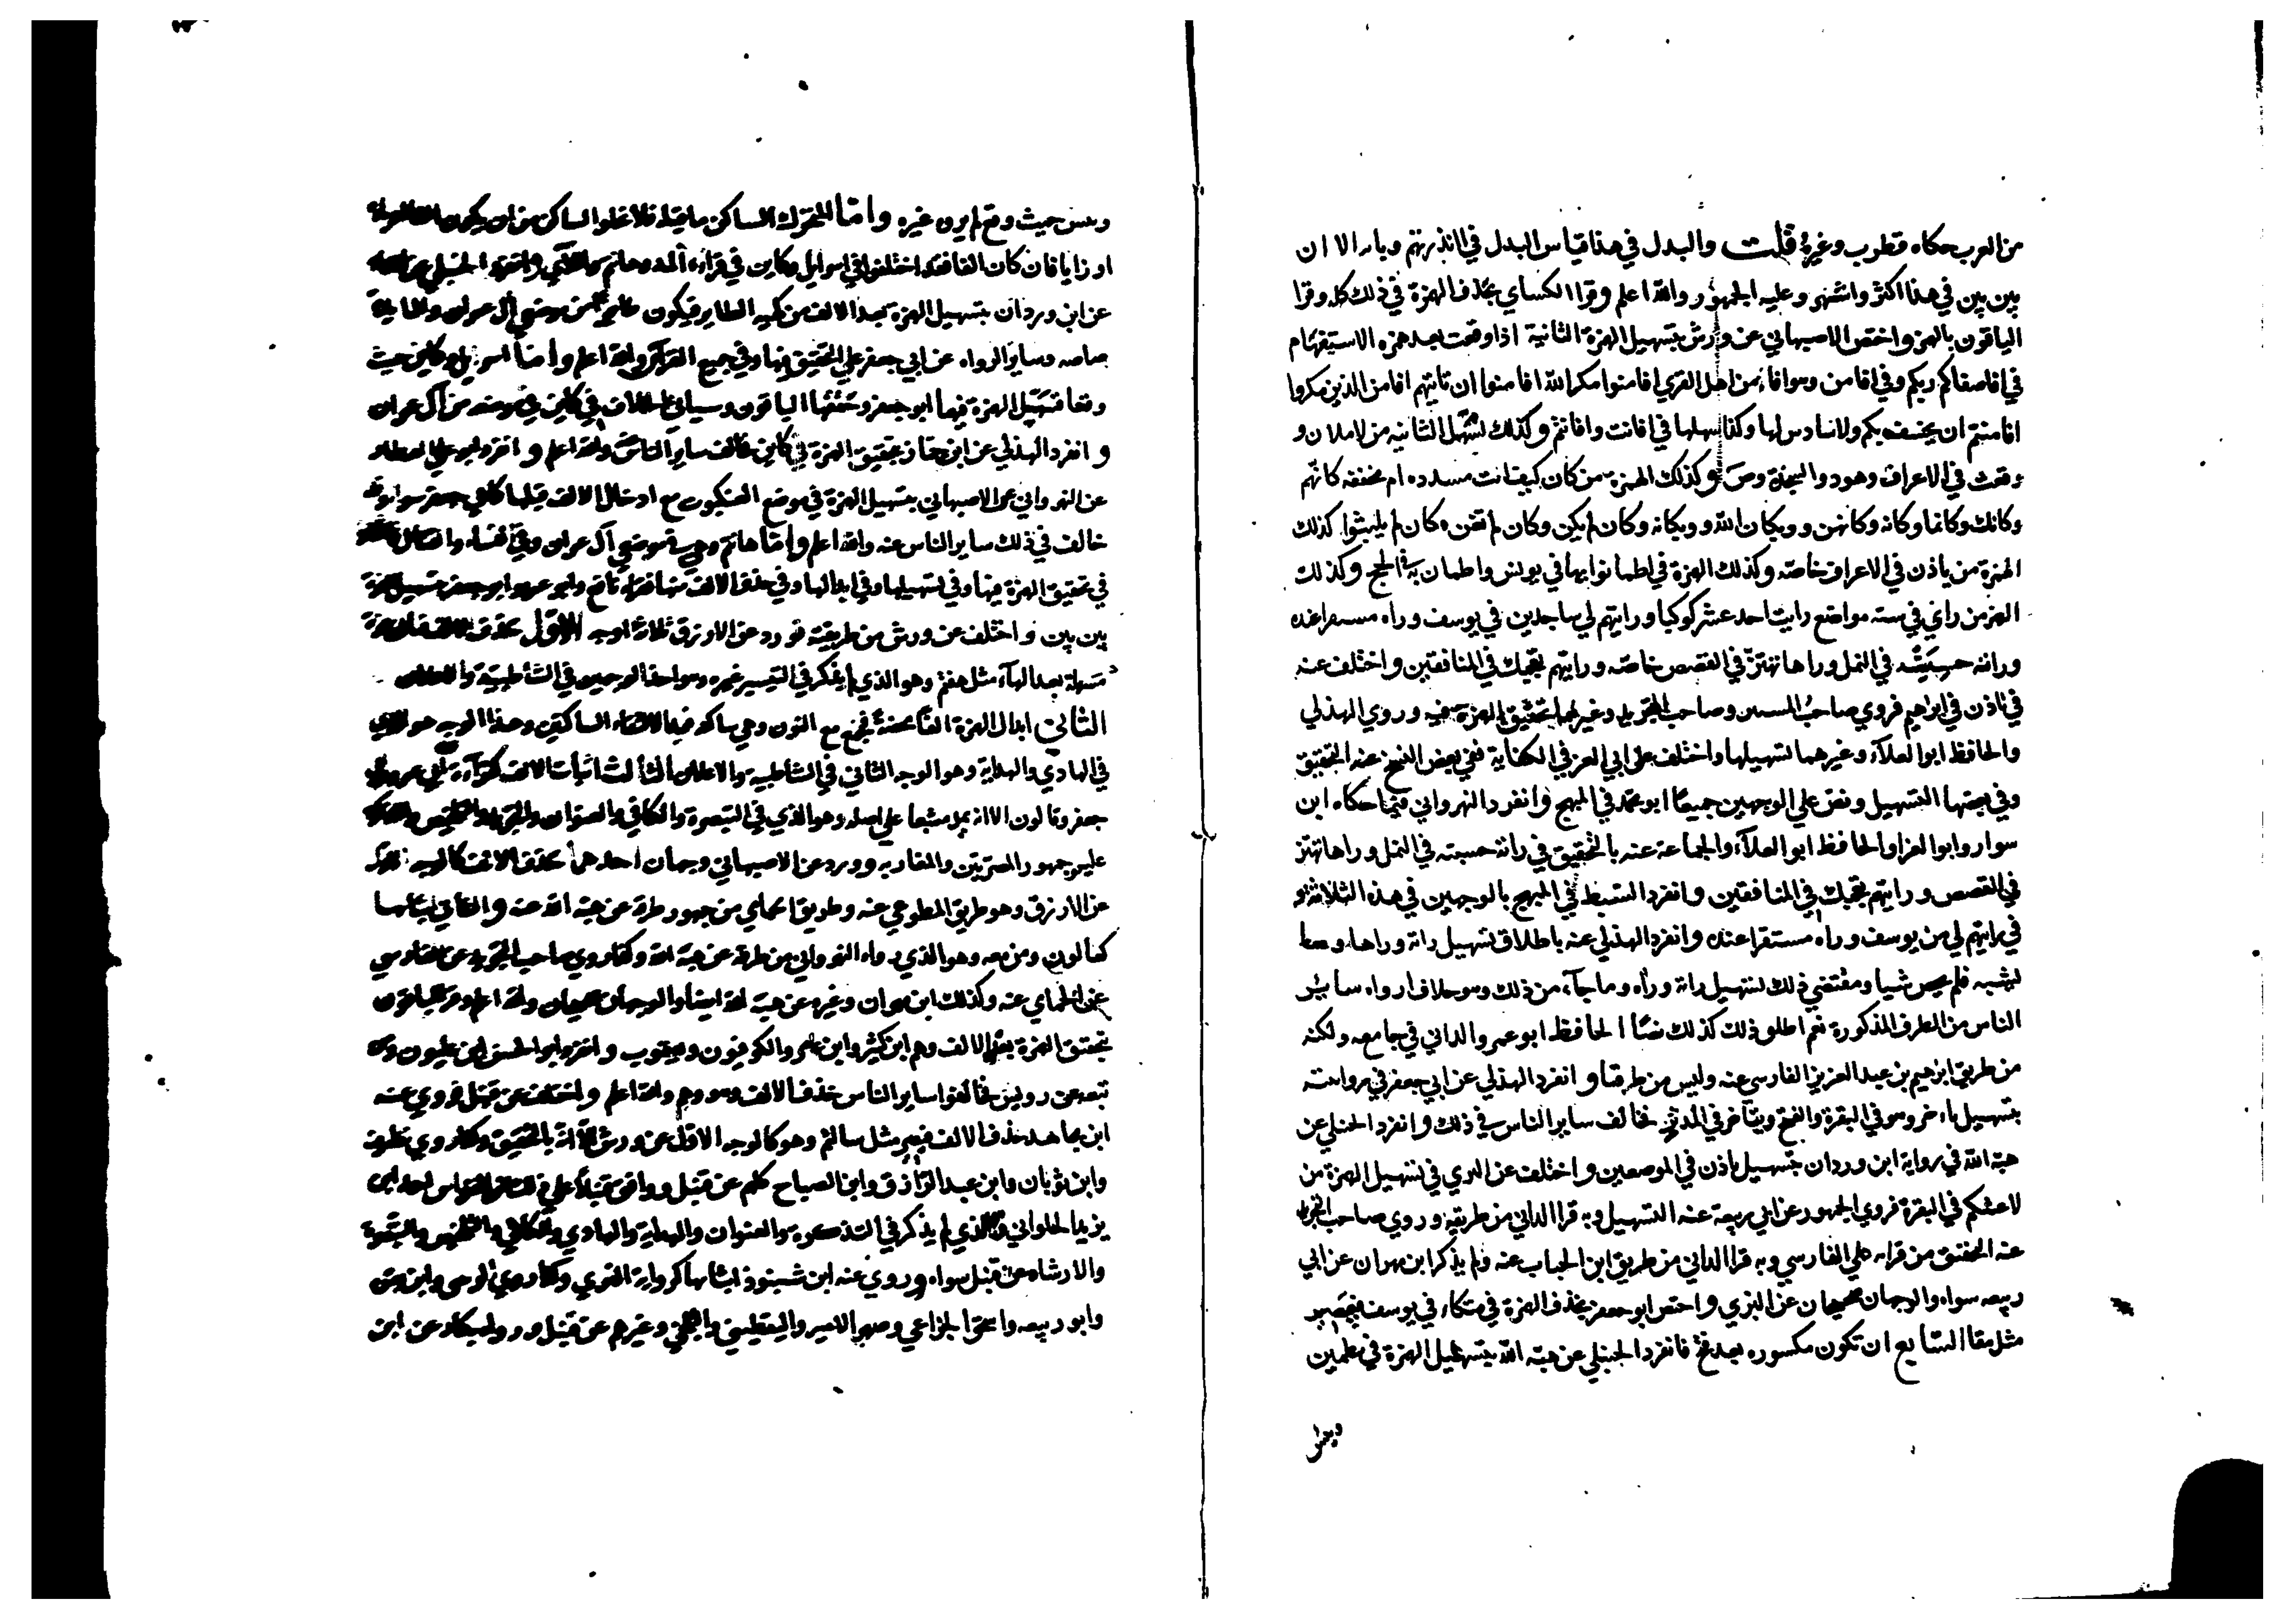 من العرب حكاه قطرب وغيره قلت والبدل في هذا قياس البدل في اانذرتهم وبابه الا ان
بين بين في هذا اكثر واشهر وعليه الجمهور والله اعلم وقرا الكساي بحذف الهمزة في ذلك كله وقرا
الباقون بالهمز واختص الاصبهاني عن ورش بتسهيل الهمزة الثانية اذا وقعت بعد همزه الاستيفهام
في افاصفاكم ربكم وفي افامن وهو افامن اهل القري افامنوا مكر الله افامنوا ان تاتيهم افامن الذين مكروا
افامنتم ان يخسف بكم ولا سادس لها وكذا سهلها في افانت وافانتم وكذلك سهل الثانيه من لاملان و
وقعت في الاعراف وهود والسجدة وص وكذلك الهمزة من كان كيف اتت مسدده ام مخففه كانهم
وكانك وكانما وكانه وكانهن وويكان الله وويكانه وكان لم يكن وكان لم تغن وكان لم يلبثوا كذلك
الهمزة من تاذن في الاعراف خاصه وكذلك الهمزة في اطمانوا بها في يونس واطمان به في الحج وكذلك
الهمز من راي في سته مواضع رايت احد عشر كوكبا ورايتهم لي ساجدين في يوسف وراه مستقرا عنده
وراته حسبته في النمل وراها تهتز في القصص خاصه ورايتهم تعجبك في المنافقين واختلف عنه
في تاذن في ابراهيم فروي صاحب المستنير وصاحب التجريد وغيرهما تحقيق الهمزة فيه وروي الهذلي
والحافظ ابو العلاء وغيرهما تسهيلها واختلف علي ابي العز في الكفاية ففي بعض النسخ عنه التحقيق
وفي بعضها التسهيل ونص علي الوجهين جميعا ابو محمد في المبهج وانفرد النهرواني فيما حكاه ابن
سوار وابو العز والحافظ ابو العلاء والجماعة عنه بالتحقيق في راته حسبته في النمل وراها تهتز
في القصص ورايتهم تعجبك في المنافقين وانفرد السبط في المبهج بالوجهين في هذه الثلاثة و
في رايتهم لي من يوسف وراه مستقرا عنده وانفرد الهذلي عنه باطلاق تسهيل راته وراها وما
يشبه فلم يخص شيا ومقتضي ذلك تسهيل راته وراه وما جاء من ذلك وهو خلاف ما رواه ساير
الناس من الطرف المذكورة نعم اطلق ذلك كذلك نصا الحافظ ابو عمرو الداني في جامعه ولكنه
من طريق ابراهيم بن عبد العزيز الفارسي عنه وليس من طرقنا وانفرد الهذلي عن ابي جعفر في روايته
بتسهيل تاخر وهو في البقرة والفتح ويتاخر في المدثر فخالف ساير الناس في ذلك وانفرد الحنبلي عن
هبة الله في رواية ابن وردان بتسهيل تاذن في الموضعين واختلف عن البزي في تسهيل الهمزة من
لاعنتكم في البقرة فروي الجمهور عن ابي ربيعة عنه التسهيل وبه قرا الداني من طريقه وروي صاحب التجريد
عنه التحقيق من قراته علي الفارسي وبه قرا الداني من طريق ابن الحباب عنه ولم يذكر ابن مهران عن ابي
ربيعه سواه والوجهان صحيحان عن البزي واختص ابو جعفر بحذف الهمزة في متكاء في يوسف فيصير
مثل متقا السابع ان تكون مكسوره بعد فتح فانفرد الحنبلي عن هبة الله بتسهيل الهمزة في تطمئن
وبيس
وبيس حيث وقع لم يروه غيره واما المتحرك الساكن ما قبله فلا يخلوا الساكن من ان يكون
او زايا فان كان الفا فقد اختلفوا في اسرايل وكاين في قراءة المد وهانتم واللائي وانفرد الحنبلي عن
عن ابن وردان بتسهيل الهمزة بعد الالف من كهيه الطاير فيكون طايرا من موضعي آل عمران والمايدة
خاصه وساير الرواه عن ابي جعفر علي التحقيق فيها وفي جميع القرآن والله اعلم واما اسرايل وكاين حيث
وقعا فسهل الهمزة فيهما ابو جعفر وحققها الباقون وسياتي الخلاف في كاين في موضعه من آل عمران
وانفرد الهذلي عن ابن جماز بتحقيق الهمزة في كاين فخالف ساير الناس والله اعلم وانفرد ابو علي العطار
عن النهرواني عن الاصبهاني بتسهيل الهمزة في موضع العنكبوت مع ادخال الالف قبلها كابي جعفر سواء وقد
خالف في ذلك ساير الناس عنه والله اعلم واما هانتم وهي في موضعي آل عمران وفي النساء والقتال
في تحقيق الهمزة فيها وفي تسهيلها وفي ابدالها وفي حذف الالف منها فقرا نافع وابو عمرو وابو جعفر بتسهيل الهمزة
بين بين واختلف عن ورش من طريقيه فورد عن الازرق ثلاثة اوجه الاول حذف الالف
مسهلة بعد الهاء مثل هعنتم وهو الذي لم يذكر في التيسير غيره وهو احد الوجهين في الشاطبية والاعلان
الثاني ابدال الهمزة الفا محضة فتجتمع مع النون وهي ساكنه فيمد لالتقاء الساكنين وهذا الوجه هو الذي
في الهادي والهداية وهو الوجه الثاني في الشاطبية والاعلان الثالث اثبات الالف كقراءة ابي عمرو وابي
جعفر وقالون الا انه يمد مشبعا علي اصله وهو الذي في التبصرة والكافي والعنوان والتجريد والتلخيص والتذكرة
عليه جمهور المصريين والمغاربه وورد عن الاصبهاني وجهان احدهما حذف الالف كالوجه الاول
عن الازرق وهو طريق المطوعي عنه وطريق الحمامي من جمهور طرقه عن هبة الله عنه والثاني اثباتها
كقالون ومن معه وهو الذي رواه النهرواني من طرقه عن هبة الله وكذا روي صاحب التجريد عن الفارسي
عن الحمامي عنه وكذلك ابن مهران وغيره عن هبة الله ايضا والوجهان صحيحان والله اعلم وقرا الباقون
بتحقيق الهمزة بعد الالف وهم ابن كثير وابن عامر والكوفيون ويعقوب وانفرد ابو الحسن ابن غلبون ومن
تبعه عن رويس فخالفوا ساير الناس فحذف الالف وهو وهم والله اعلم واختلف عن قنبل فروي عنه
ابن مجاهد حذف الالف فيصير مثل سالتم وهو كالوجه الاول عن ورش الا انه بالتحقيق وكذا روي نظيف
وابن ثوبان وابن عبد الرزاق وابن الصباح كلهم عن قنبل ووافق قنبلا علي ذلك عن القواس احمد ابن
يزيد الحلواني وهو الذي لم يذكر في التذكرة والعنوان والهداية والهادي والكافي والتلخيص والتبصرة
والارشاد عن قنبل سواه وروي عنه ابن شنبوذ اثباتها كرواية البزي وكذا روي الزينبي وابن بقرة
وابو ربيعه واسحق الخزاعي وصهر الامير واليقطيني والبلخي وغيرهم عن قنبل ورواه بكار عن ابن